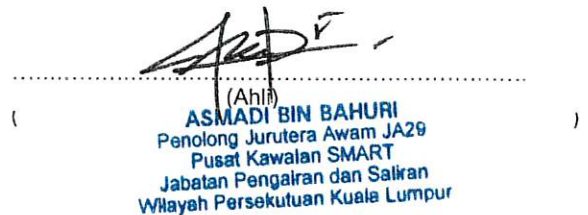 (Ahli)
( )
ASMADI BIN BAHURI
Penolong Jurutera Awam JA29
Pusat Kawalan SMART
Jabatan Pengairan dan Saliran
Wilayah Persekutuan Kuala Lumpur